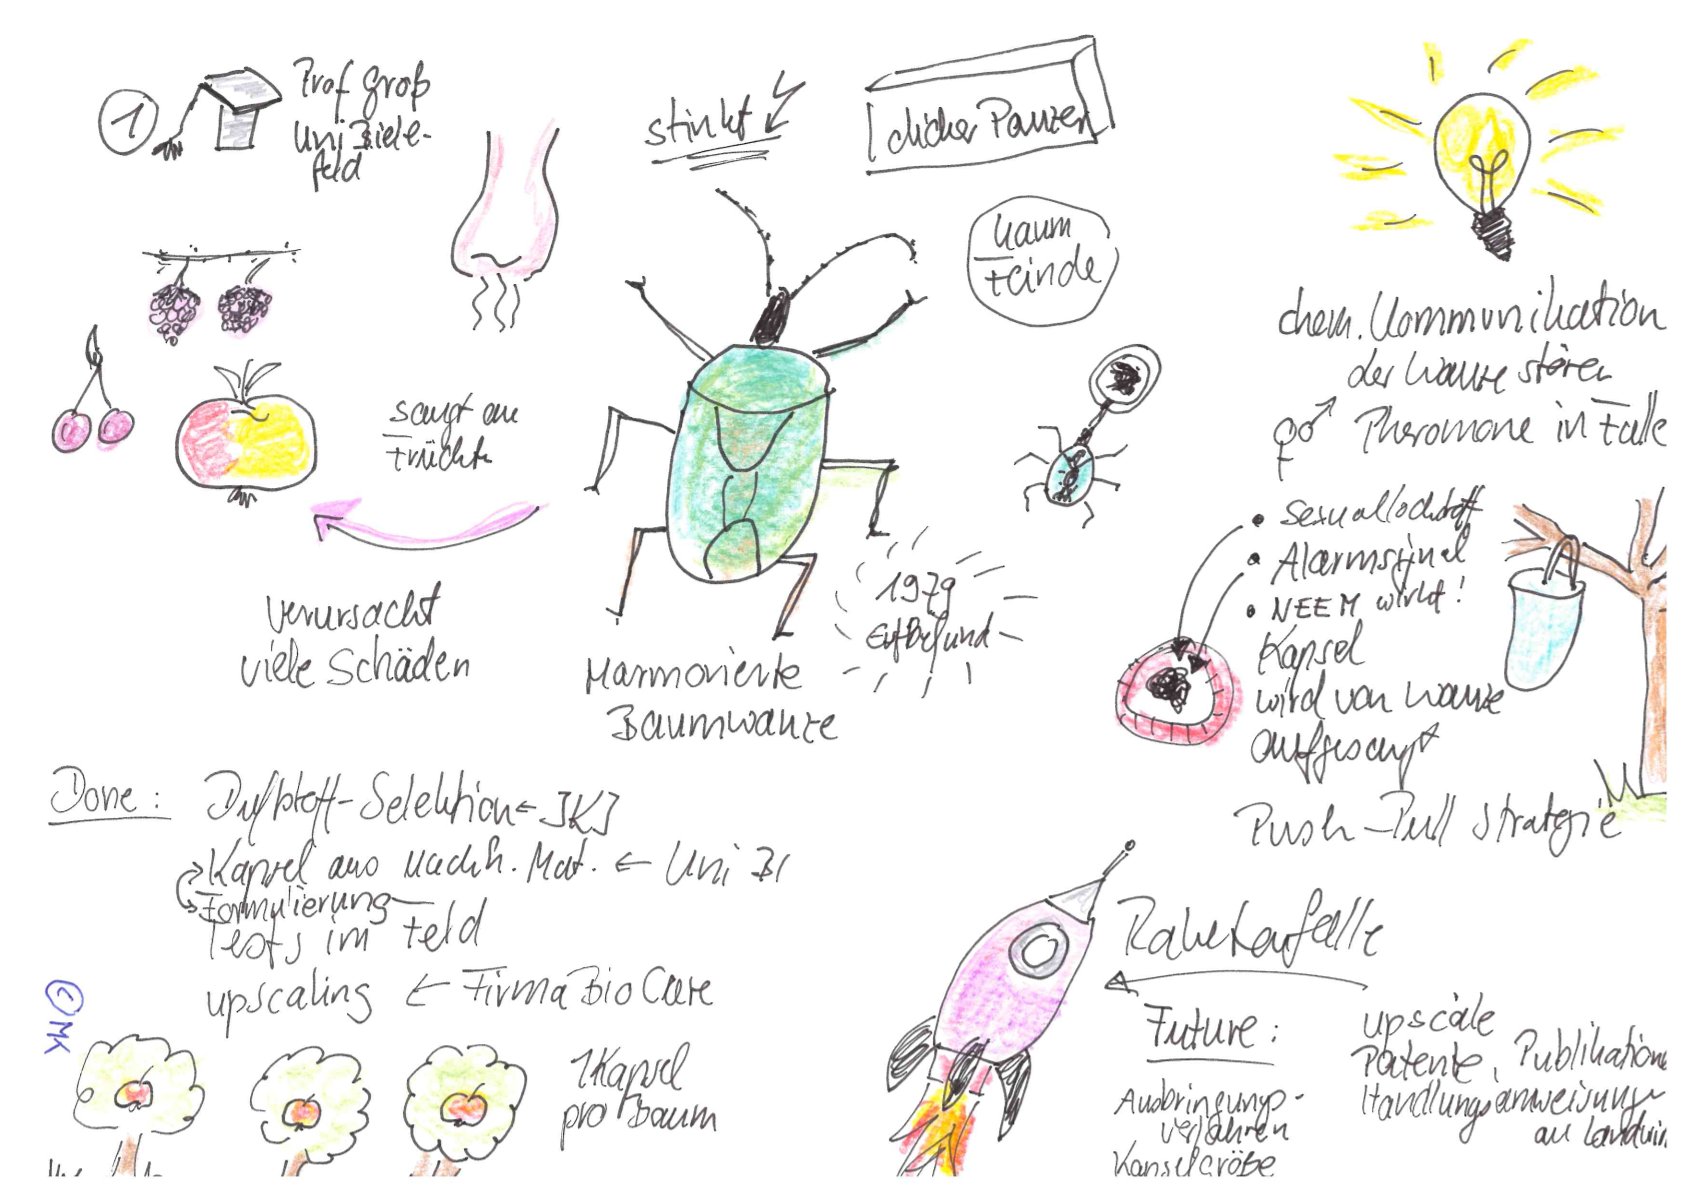 1
Prof Groß
Uni Biele-
feld
stinkt
dicker Panzer
kaum
Feinde
saugt an
Früchte
verursacht
viele Schäden
Marmorierte
Baumwanze
1979
chem. Kommunikation
der Wanze stören
Pheromone in Falle
• Sexuallockstoff
• Alarmsignal
• NEEM wirkt!
Kapsel
wird von Wanze
aufgesaugt
Push-Pull Strategie
Done:
Duftstoff-Selektion ← JKI
Kapsel aus nachh. Mat. ← Uni BI
Formulierung
Tests im Feld
upscaling ← Firma BioCare
©MK
1 Kapsel
pro Baum
Raketenfalle
Future:
Ausbringungs-
verfahren
Kapselgröße
upscale
Patente, Publikatione
Handlungsanweisunge
an Landwir